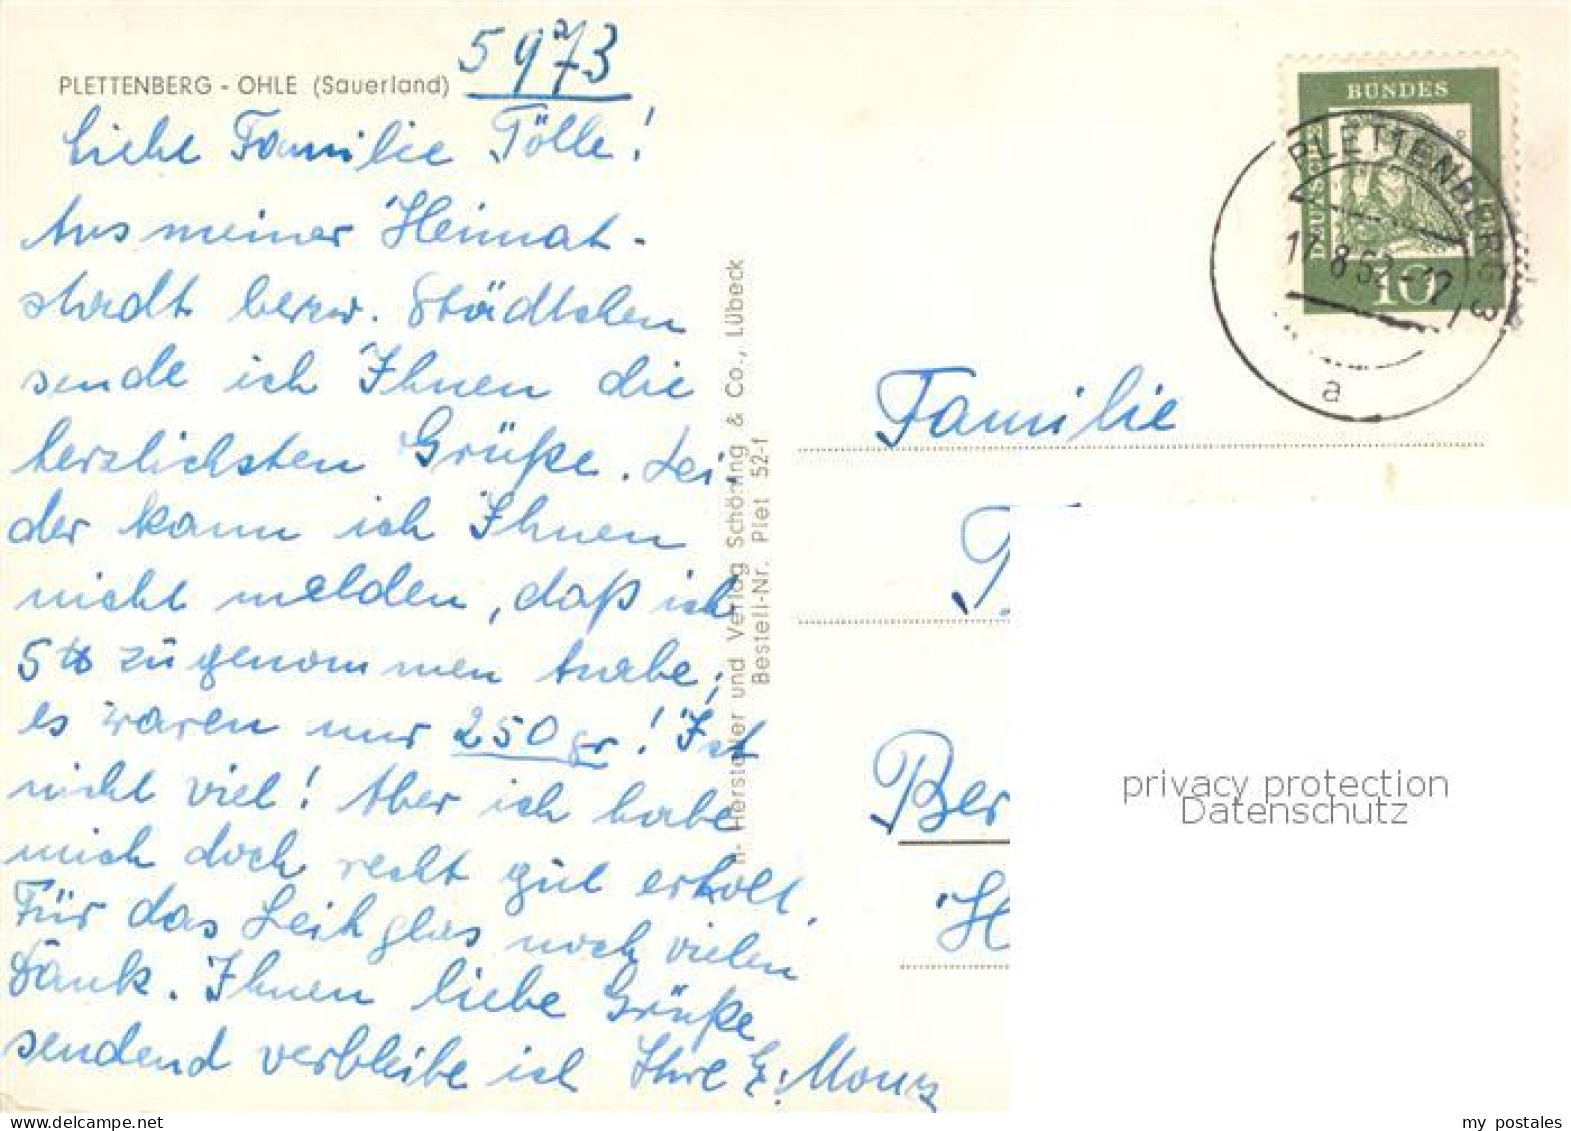 5973
PLETTENBERG - OHLE (Sauerland)
Liebe Familie Tölle!
Aus meiner Heimat-
stadt bezw. Städtchen
sende ich Ihnen die
herzlichsten Grüße. Lei-
der kann ich Ihnen
nicht melden, daß ich
5 ℔ zugenommen habe,
es waren nur 250 gr! Ist
nicht viel! Aber ich habe
mich doch recht gut erholt.
Für das Leihglas noch vielen
Dank. Ihnen liebe Grüße
sendend verbleibe ich Ihre
n- Hersteller und Verlag Schöning & Co., Lübeck
Bestell-Nr. Plet 52-1
DEUTSCHE
BUNDES
10
PLETTENBERG 3
17.8.62-12
a
Familie
T
Ber
H
privacy protection
Datenschutz
my postales
www.delcampe.net